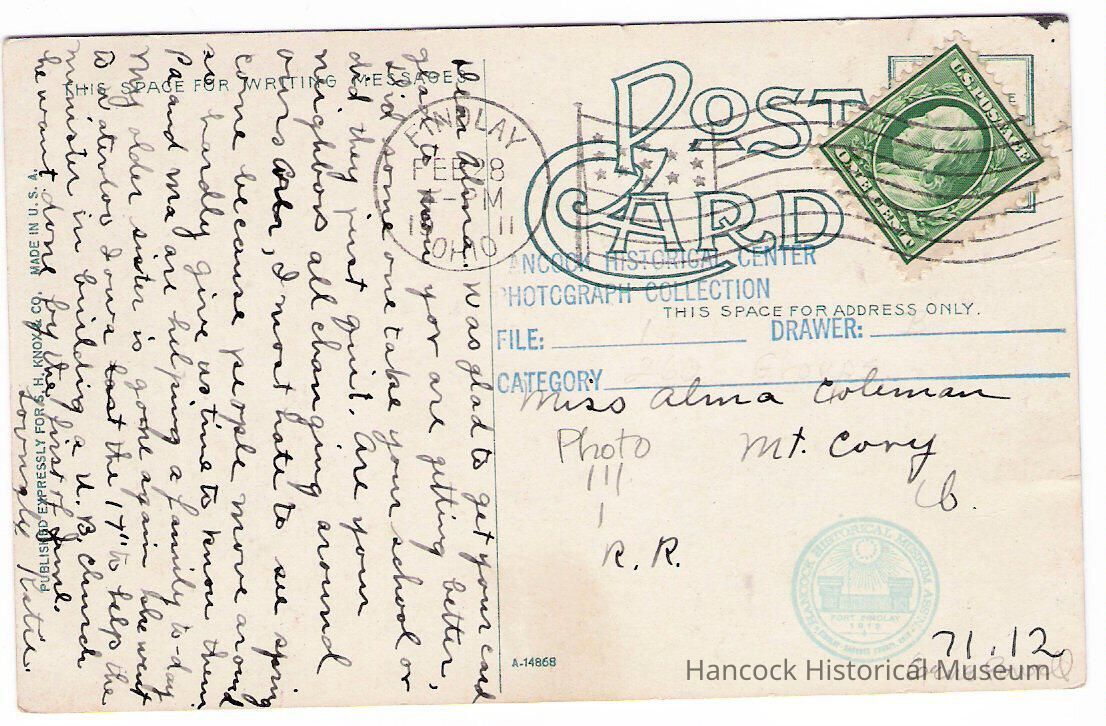 THIS SPACE FOR WRITING MESSAGES
Dear Alma. Was glad to get your card
glad to know you are getting better,
Did some one take your school or
did they just quit. Are your
neighbors all changing around
ours are, I most hate to see spring
come because people move around
so hardly give us time to know them
Pa and ma are helping a family to-day
My older sister is gone again she went
to Waterloo Iowa the 17" to help the
minister in building a U.B. church
he want done by the first of June.
Lovingly Katie.
PUBLISHED EXPRESSLY FOR S. H. KNOX & CO. MADE IN U. S. A.
FINDLAY
FEB 28
OHIO
POST
CARD
U.S. POSTAGE
ONE CENT
HANCOCK HISTORICAL CENTER
PHOTOGRAPH COLLECTION
THIS SPACE FOR ADDRESS ONLY.
FILE: DRAWER:
CATEGORY
Miss Alma Coleman
Photo Mt. Cory
O.
R. R.
HANCOCK HISTORICAL MUSEUM ASSN.
FORT FINDLAY
1812
71.12
A-14868
Hancock Historical Museum